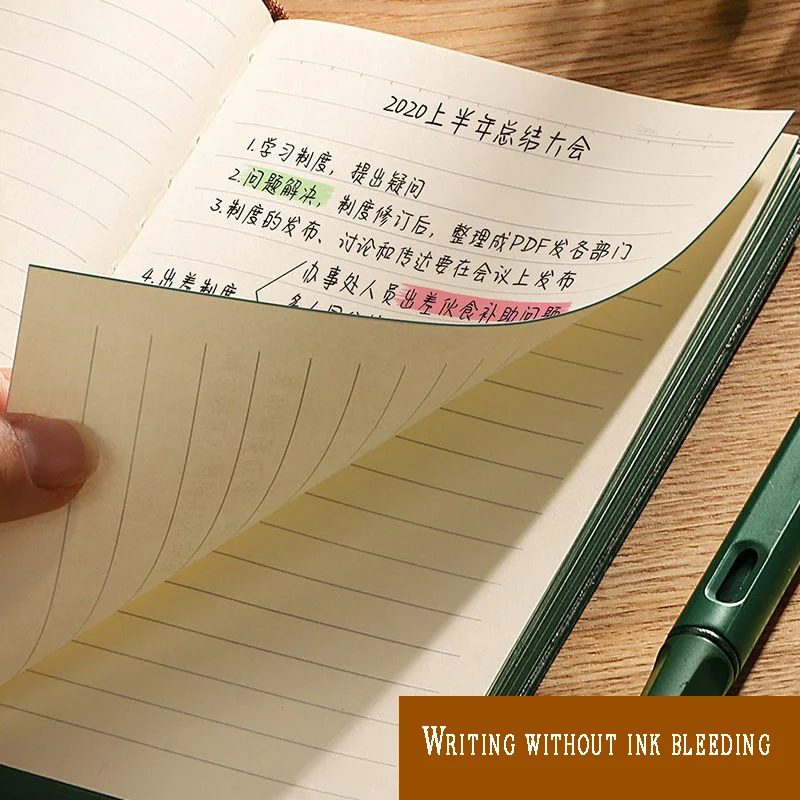 2020上半年总结大会
Date:
1.学习制度，提出疑问
2.问题解决，制度修订后，整理成PDF发各部门
3.制度的发布、讨论和传达要在会议上发布
4.出差制度
办事处人员出差伙食补助问题
WRITING WITHOUT INK BLEEDING